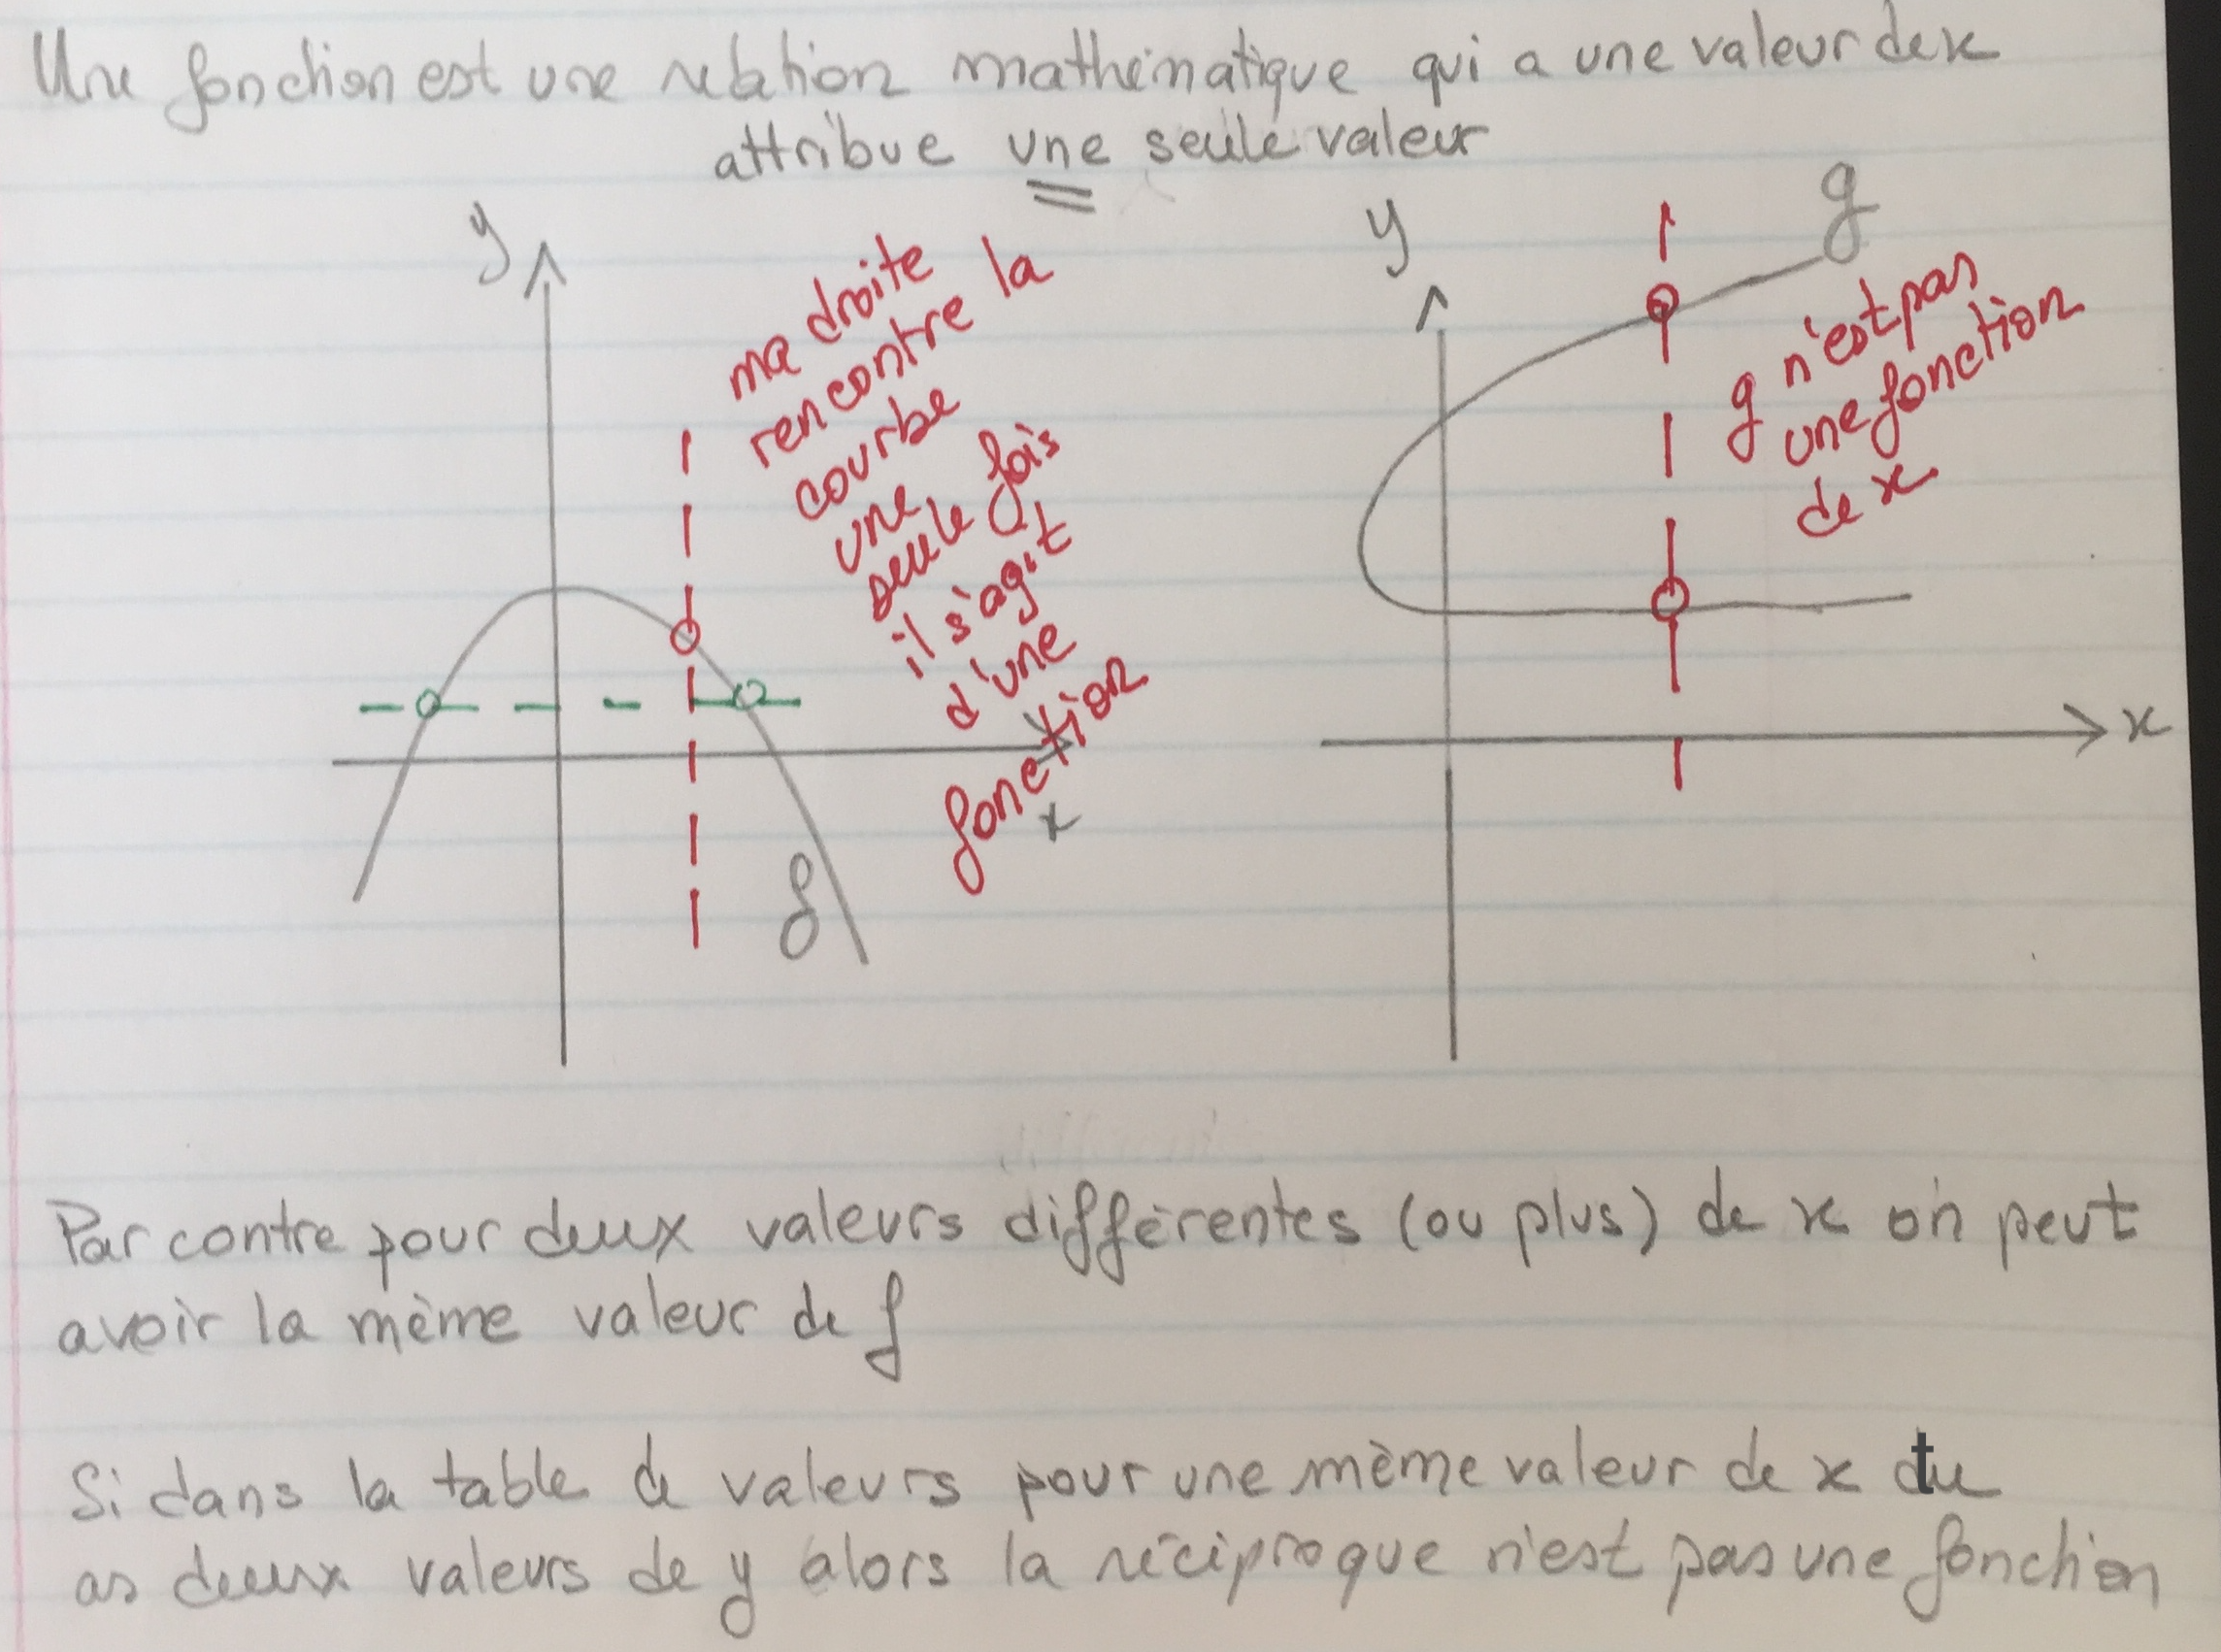 Une fonction est une relation mathématique qui a une valeur de x
attribue une seule valeur
y
ma droite
rencontre la
courbe
une
seule fois
il s'agit
d'une
fonction
x
f
y
g
g n'est pas
une fonction
de x
x
Par contre pour deux valeurs différentes (ou plus) de x on peut
avoir la même valeur de f
Si dans la table de valeurs pour une même valeur de x tu
as deux valeurs de y alors la réciproque n'est pas une fonction